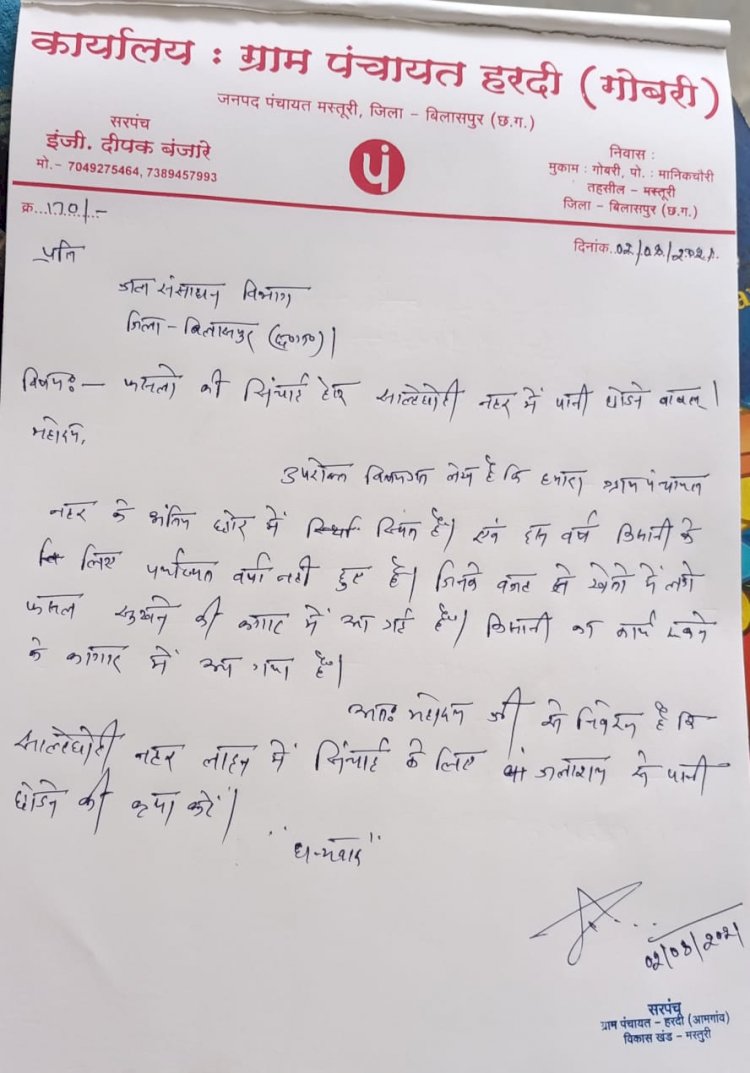 कार्यालय : ग्राम पंचायत हरदी (गोबरी)
जनपद पंचायत मस्तूरी, जिला - बिलासपुर (छ.ग.)
सरपंच
इंजी. दीपक बंजारे
मो.- 7049275464, 7389457993
पं
निवास :
मुकाम : गोबरी, पो. : मानिकचौरी
तहसील - मस्तूरी
जिला - बिलासपुर (छ.ग.)
क्र...170/-
दिनांक..02/08/2021.
प्रति
जल संसाधन विभाग
जिला - बिलासपुर (छ०ग०)।
विषय:- फसलो की सिंचाई हेतु नहर में पानी छोडने बाबत्।
महोदय,
उपरोक्त विषयान्तर्गत लेख है कि हमारा ग्राम पंचायत
नहर के अंतिम छोर में स्थित है। एवं इस वर्ष किसानो के
लिए पर्याप्त वर्षा नही हुए है। जिनके वजह से खेतो में लगे
फसल सुखने की कगार में आ गई है। किसानो का कार्य रुकने
के कागार में आ गया है।
अतः महोदय जी से निवेदन है कि
नहर लाइन में सिंचाई के लिए जलाशय से पानी
छोडने की कृपा करें।
"धन्यवाद"
02/08/2021
सरपंच
ग्राम पंचायत - हरदी (आमगांव)
विकास खंड - मस्तुरी